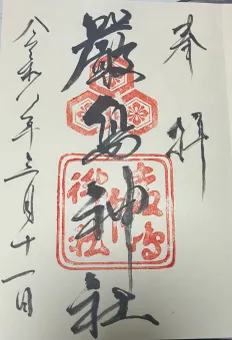 奉拝
嚴島神社
令和八年三月十一日
嚴島神社